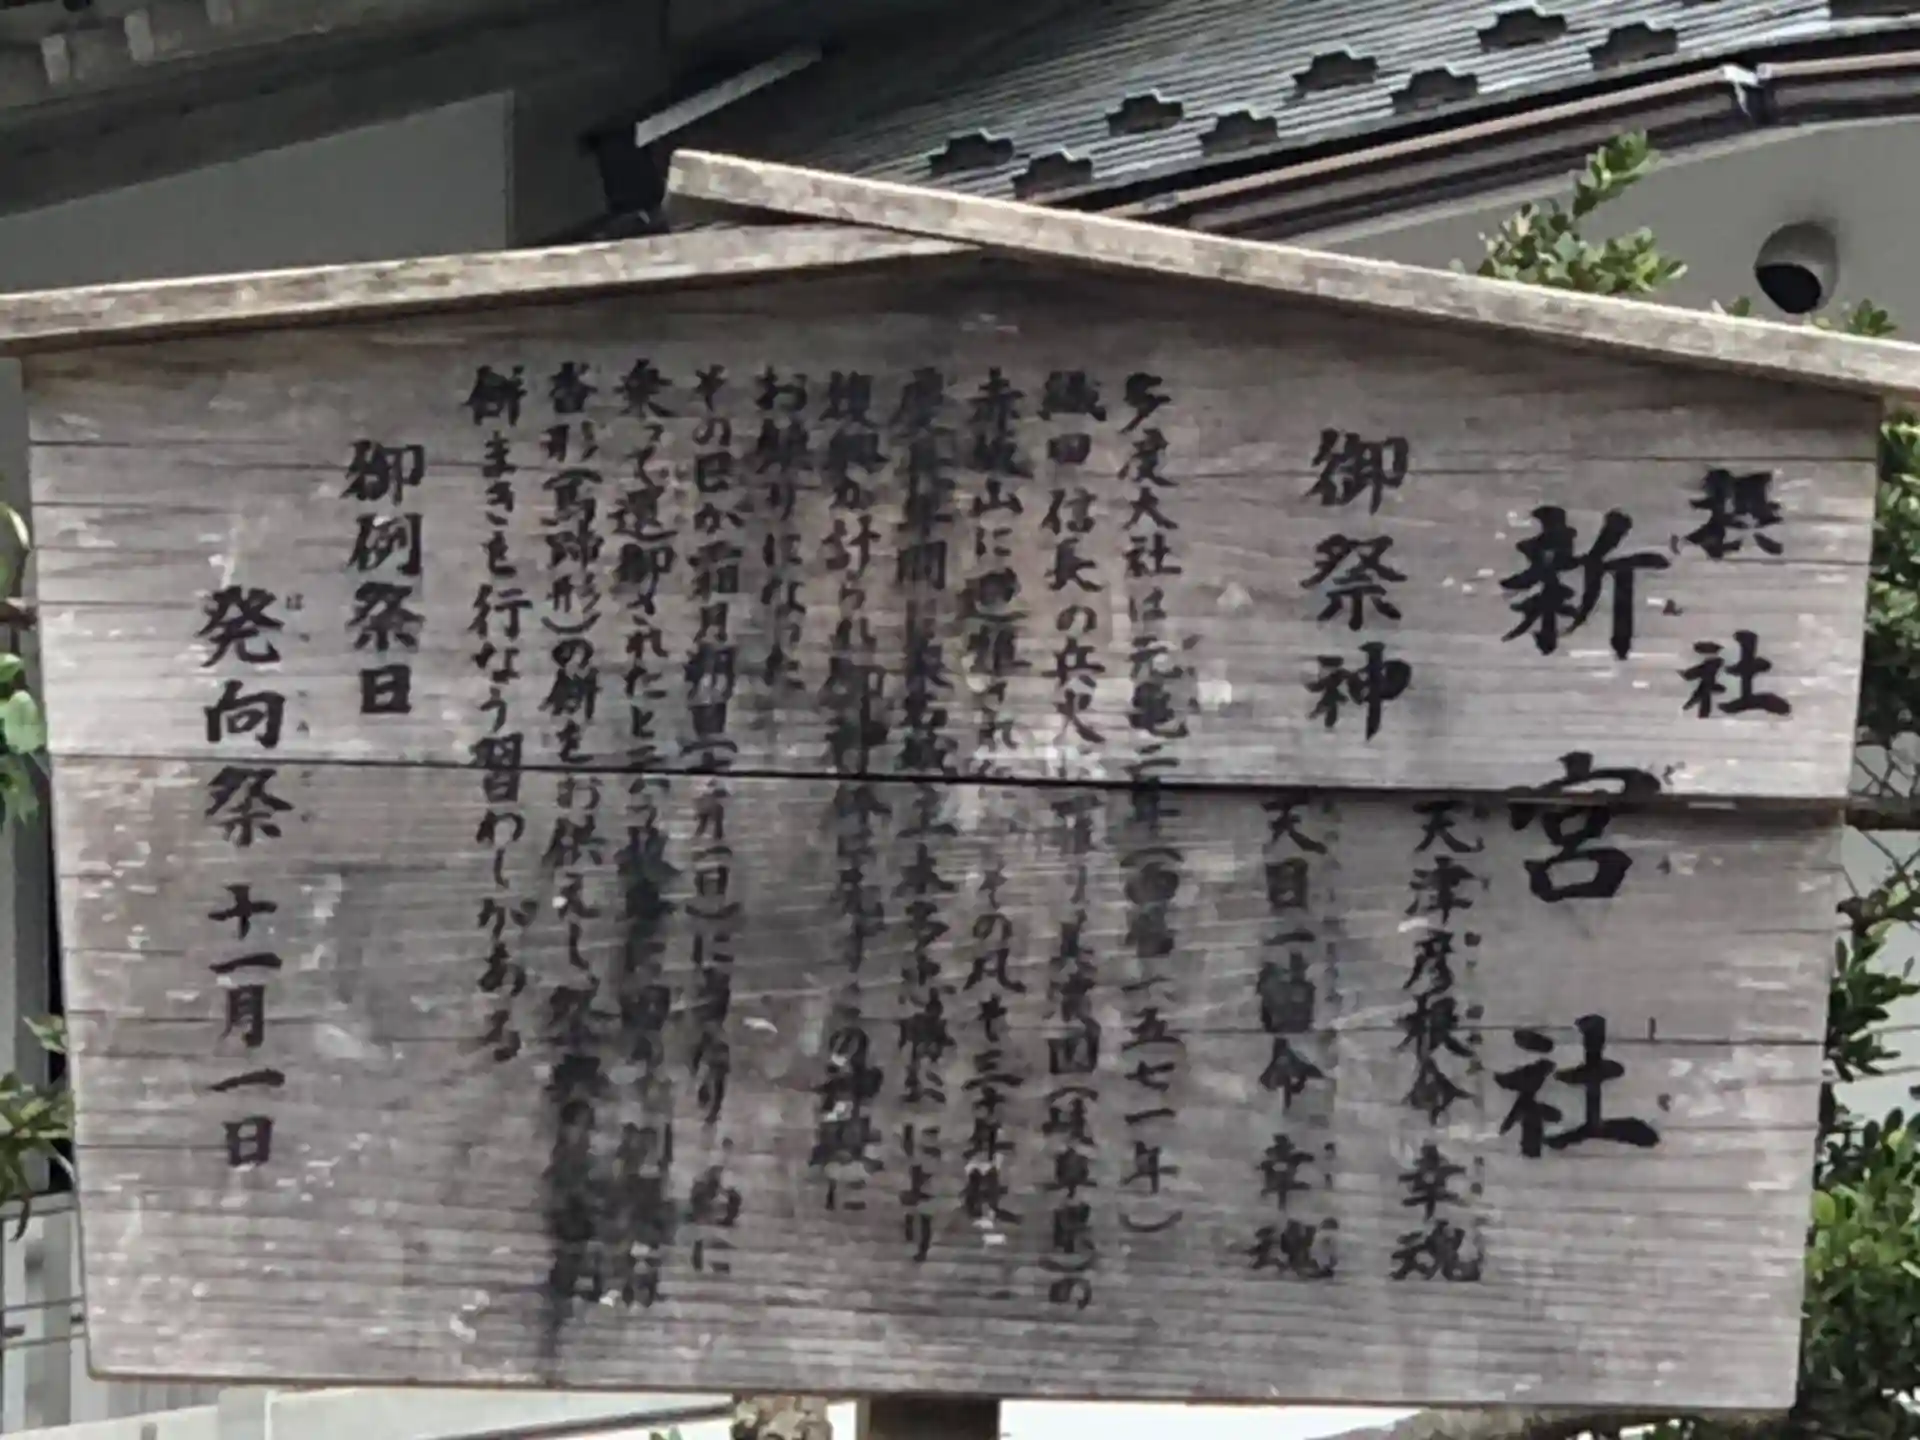 摂社
新宮社
御祭神
天津彦根命 幸魂
天目一箇命 幸魂
多度大社は元亀二年(西暦一五七一年)
織田信長の兵火に罹り美濃国(岐阜県)の
赤坂山に避難された。その凡そ三十年後
慶長年間に桑名城主本多忠勝公により
復興が計られ御神体は先ずこの神殿に
お鎮りになった
その日が霜月朔日(十一月一日)に当たり、
乗って還御されたと云う
沓形(馬蹄形)の餅をお供えし、
餅まきを行なう習わしがある
御例祭日
発向祭 十一月一日